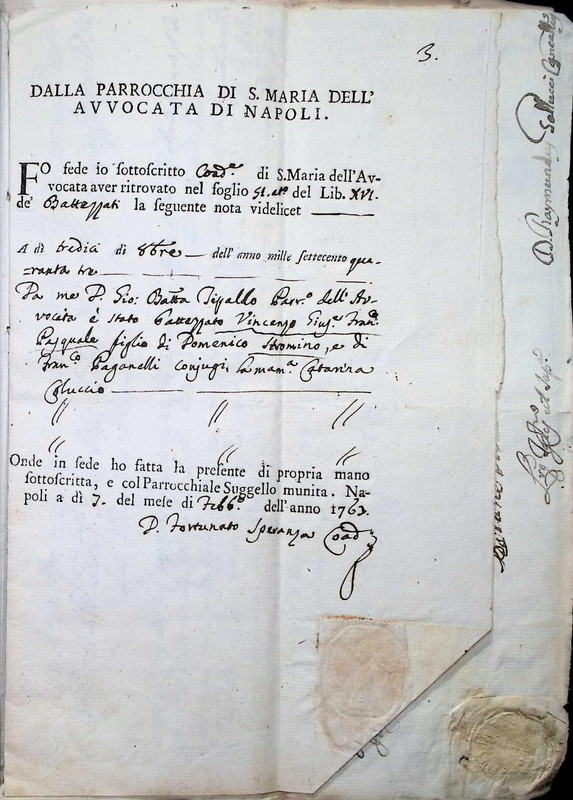 3.
DALLA PARROCCHIA DI S. MARIA DELL'
AVVOCATA DI NAPOLI.
FO fede io sottoscritto Coad.e di S. Maria dell'Av-
vocata aver ritrovato nel foglio 51. at.o del Lib. XVI.
de' Battezzati la seguente nota videlicet
A dì tredici di 8bre dell'anno mille settecento qua-
ranta tre
Da me D. Gio: Batta Parr.o dell'Av-
vocata è stato battezzato Vincenzo Gius.e Fran.o
Pasquale figlio di Domenico Stromino, e di
Fran.a Paganelli conjugi, la mam.a Catarina
Coluccio
Onde in fede ho fatta la presente di propria mano
sottoscritta, e col Parrocchiale Suggello munita. Na-
poli a dì 7. del mese di Febb.o dell'anno 1763.
D. Fortunato Speranza Coad.e
D. Raymundus